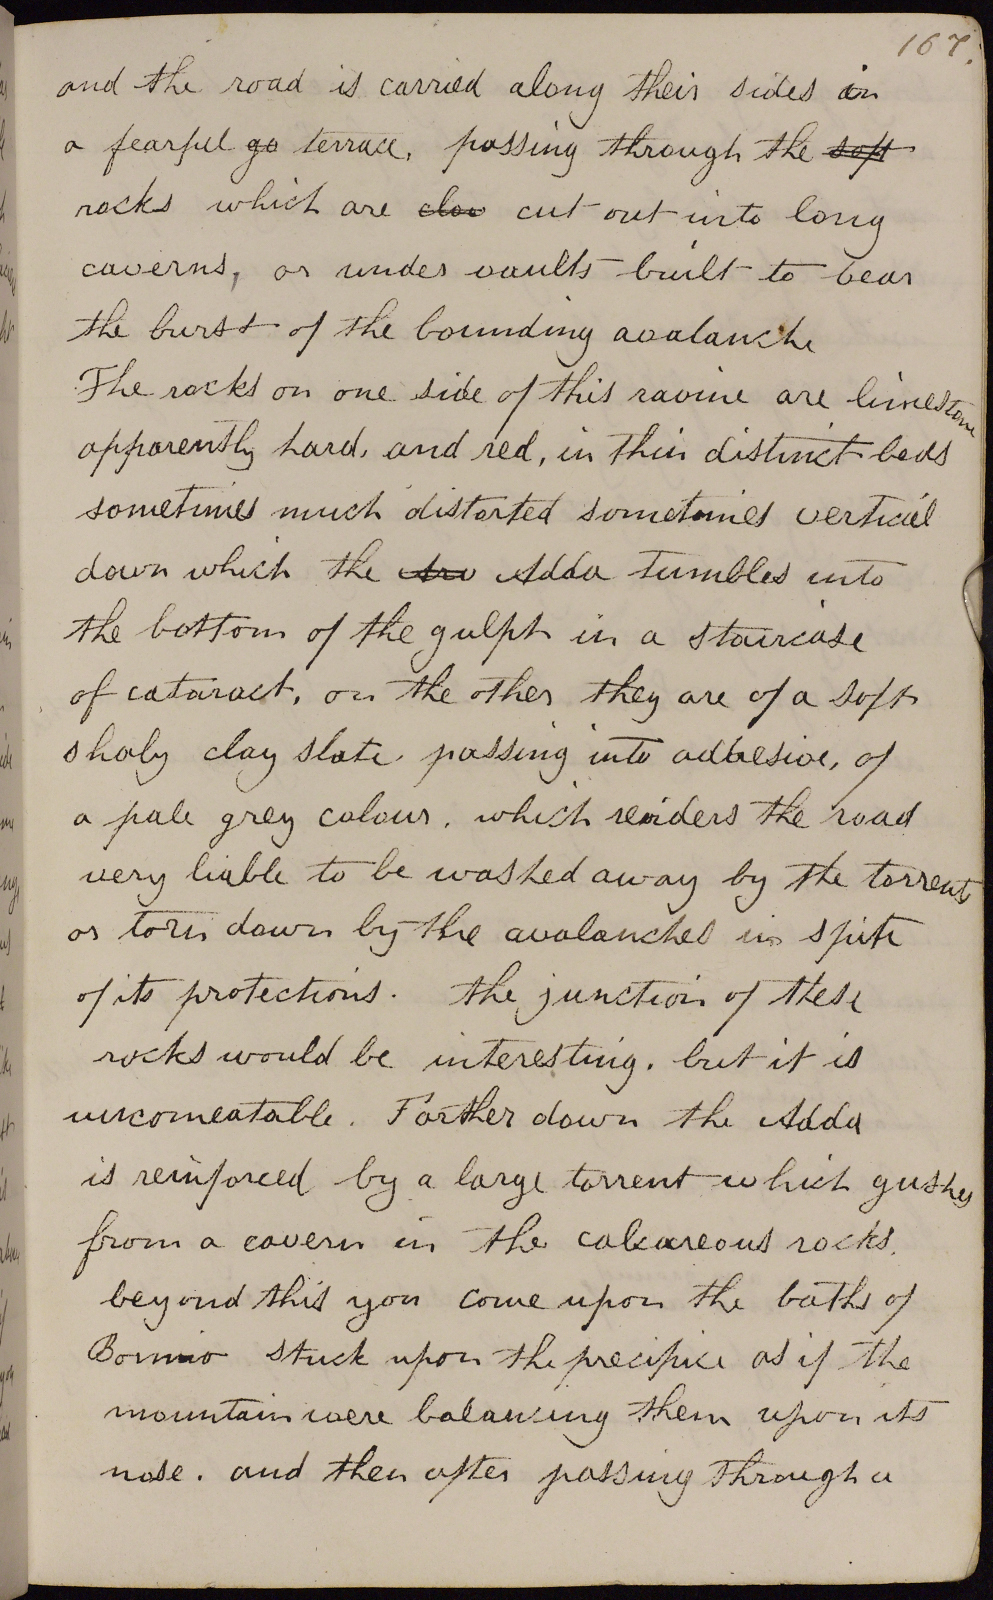 167.
and the road is carried along their sides in
a fearful go terrace, passing through the soft
rocks which are clov cut out into long
caverns, or under vaults built to bear
the burst of the bounding avalanche
The rocks on one side of this ravine are limestone
apparently hard, and red, in thin distinct beds
sometimes much distorted sometimes vertical
down which the Arv Adda tumbles into
the bottom of the gulph in a staircase
of cataract, on the other they are of a soft
shaly clay slate, passing into adhesive, of
a pale grey colour, which renders the road
very liable to be washed away by the torrents
or torn down by the avalanches in spite
of its protections. the junction of these
rocks would be interesting, but it is
uncomeatable. Farther down the Adda
is reinforced by a large torrent which gushes
from a cavern in the calcareous rocks.
beyond this you come upon the baths of
Bormio stuck upon the precipice as if the
mountain were balancing them upon its
nose. and then after passing through a